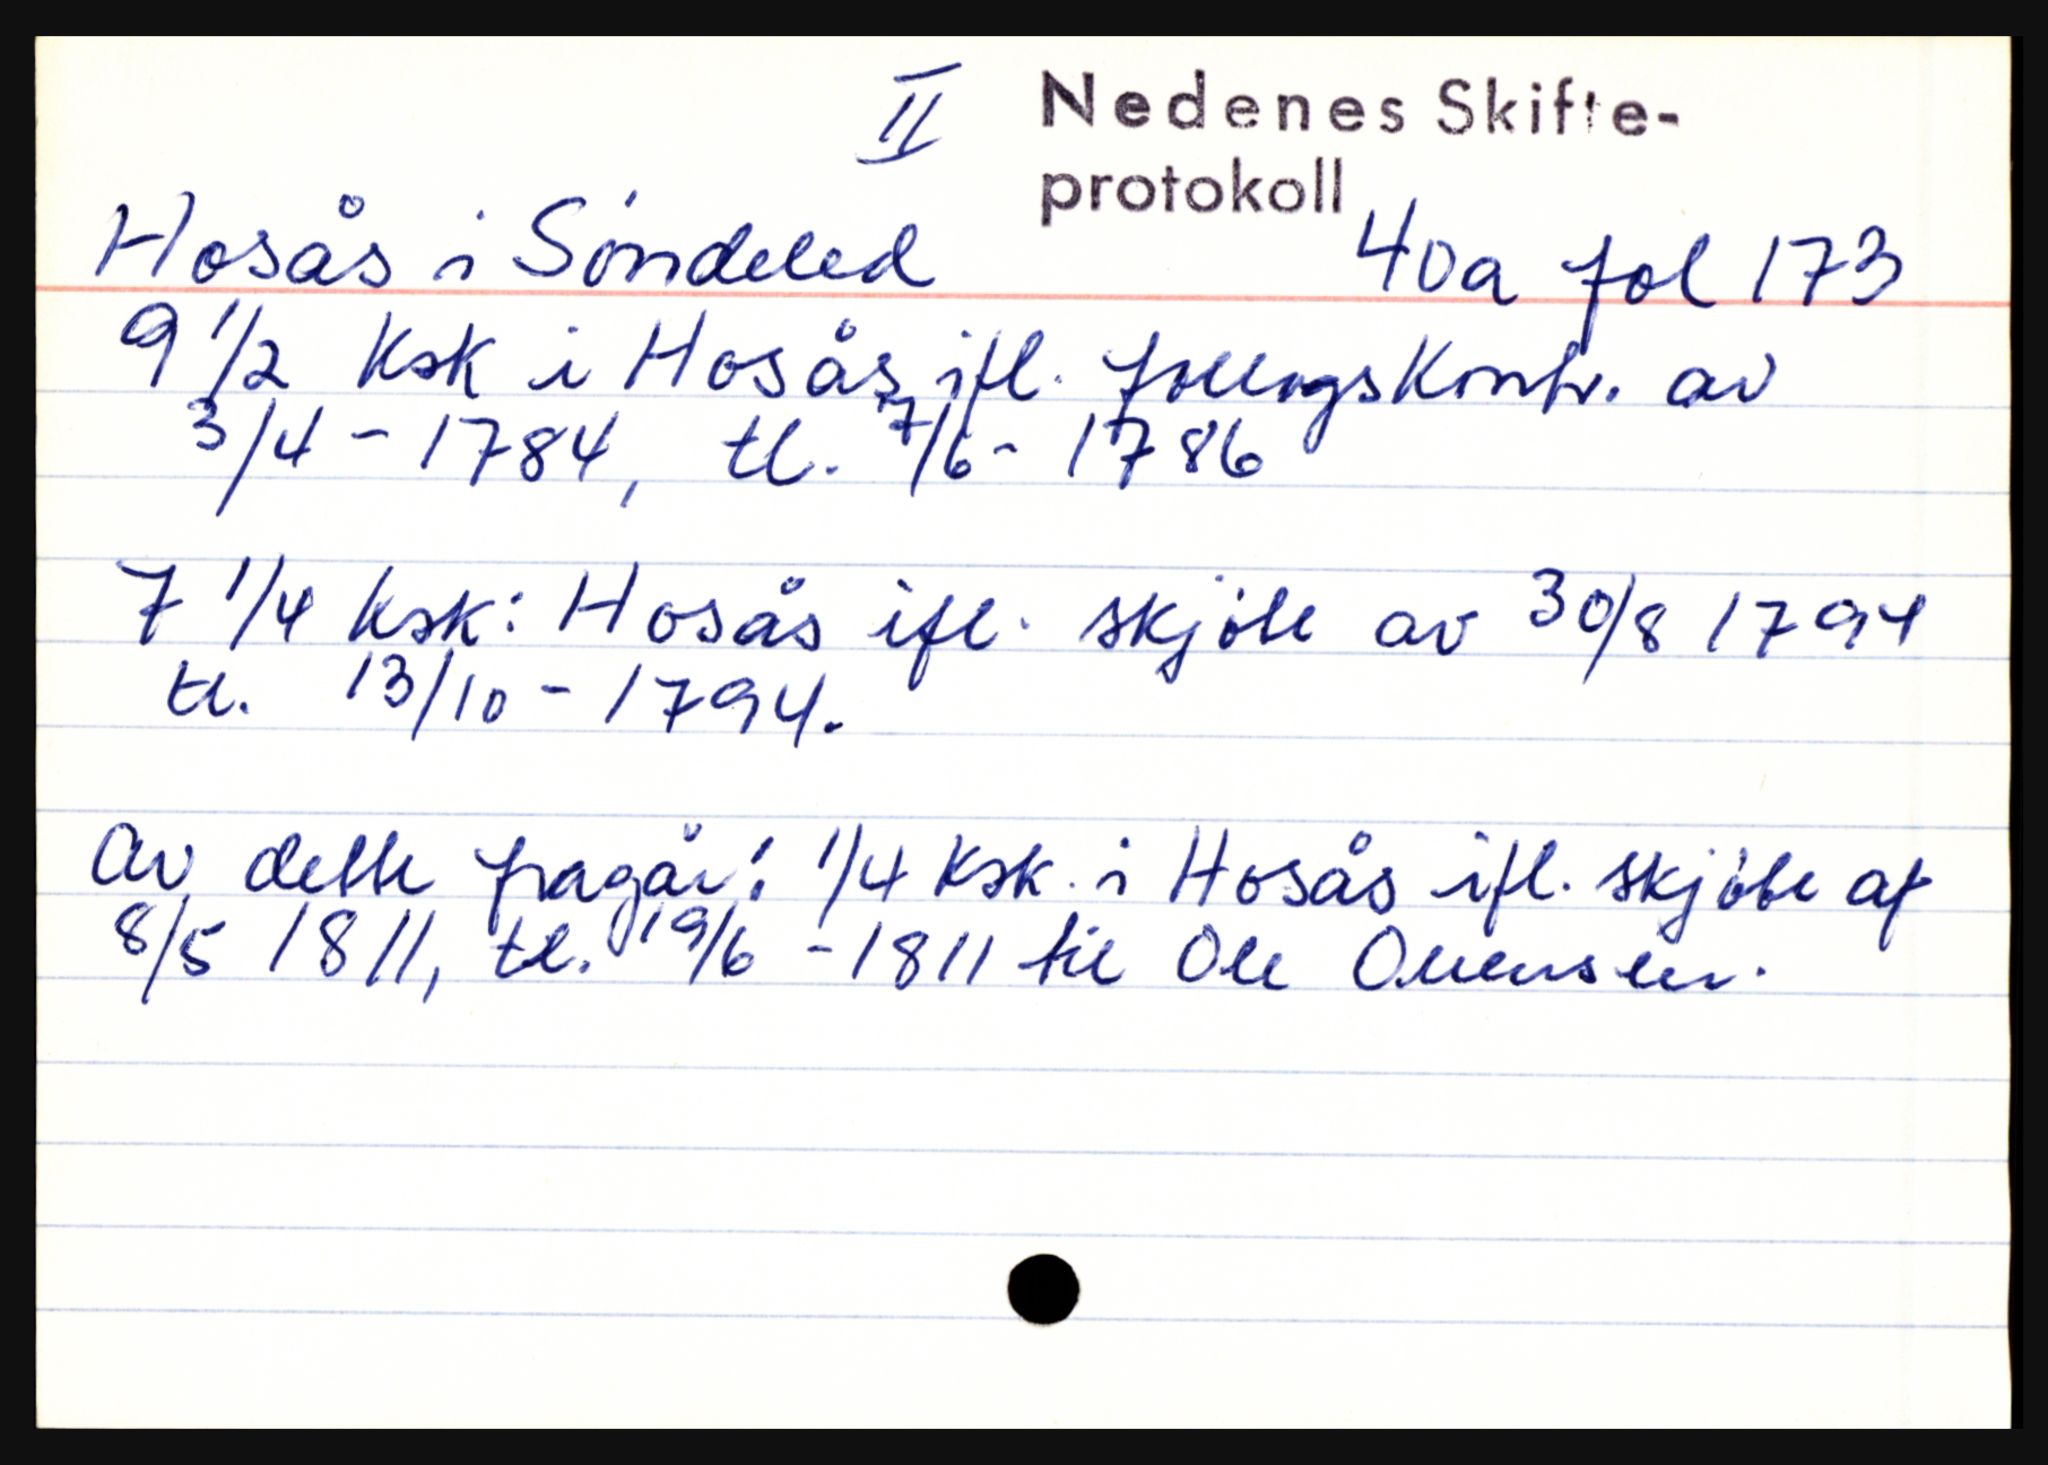 II Nedenes Skifte-
protokoll
Hosås i Söndeled 40a fol 173
9 1/2 Ksk i Hosås ifl. follogskontr. av
3/4 - 1784, tl. 7/6 - 1786
7 1/4 ksk: Hosås ifl. skjöte av 30/8 1794
tl. 13/10 - 1794.
Av dette fragår: 1/4 Ksk. i Hosås ifl. skjöte af
8/5 1811, tl. 19/6 - 1811 til Ole